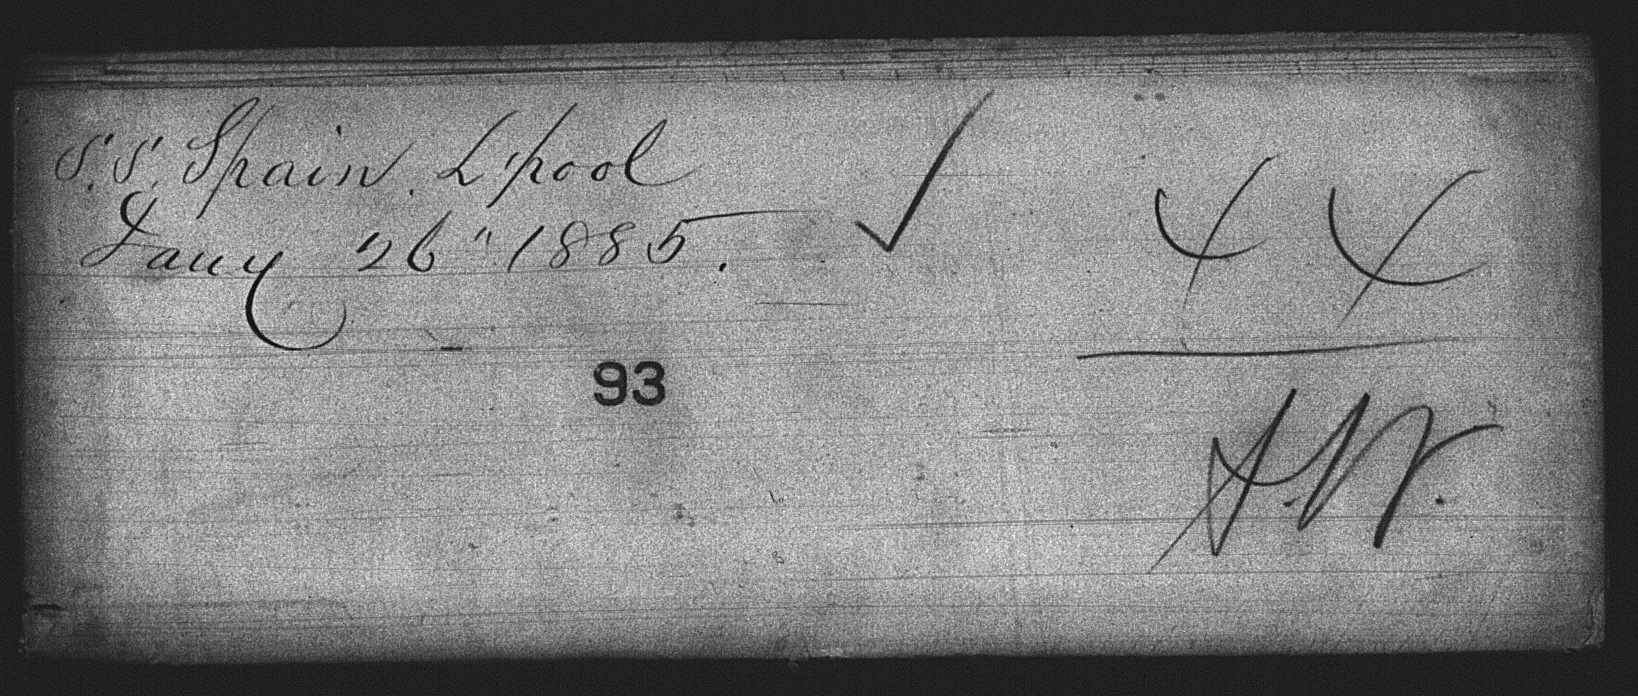 S.S. Spain. L'pool
Jany 26" 1885.
44
93
A.W.